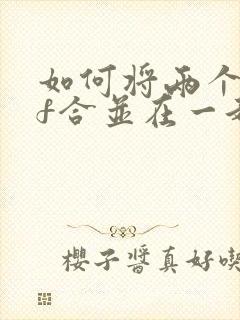 如何将两个
f合並在一
櫻子醬真好喫